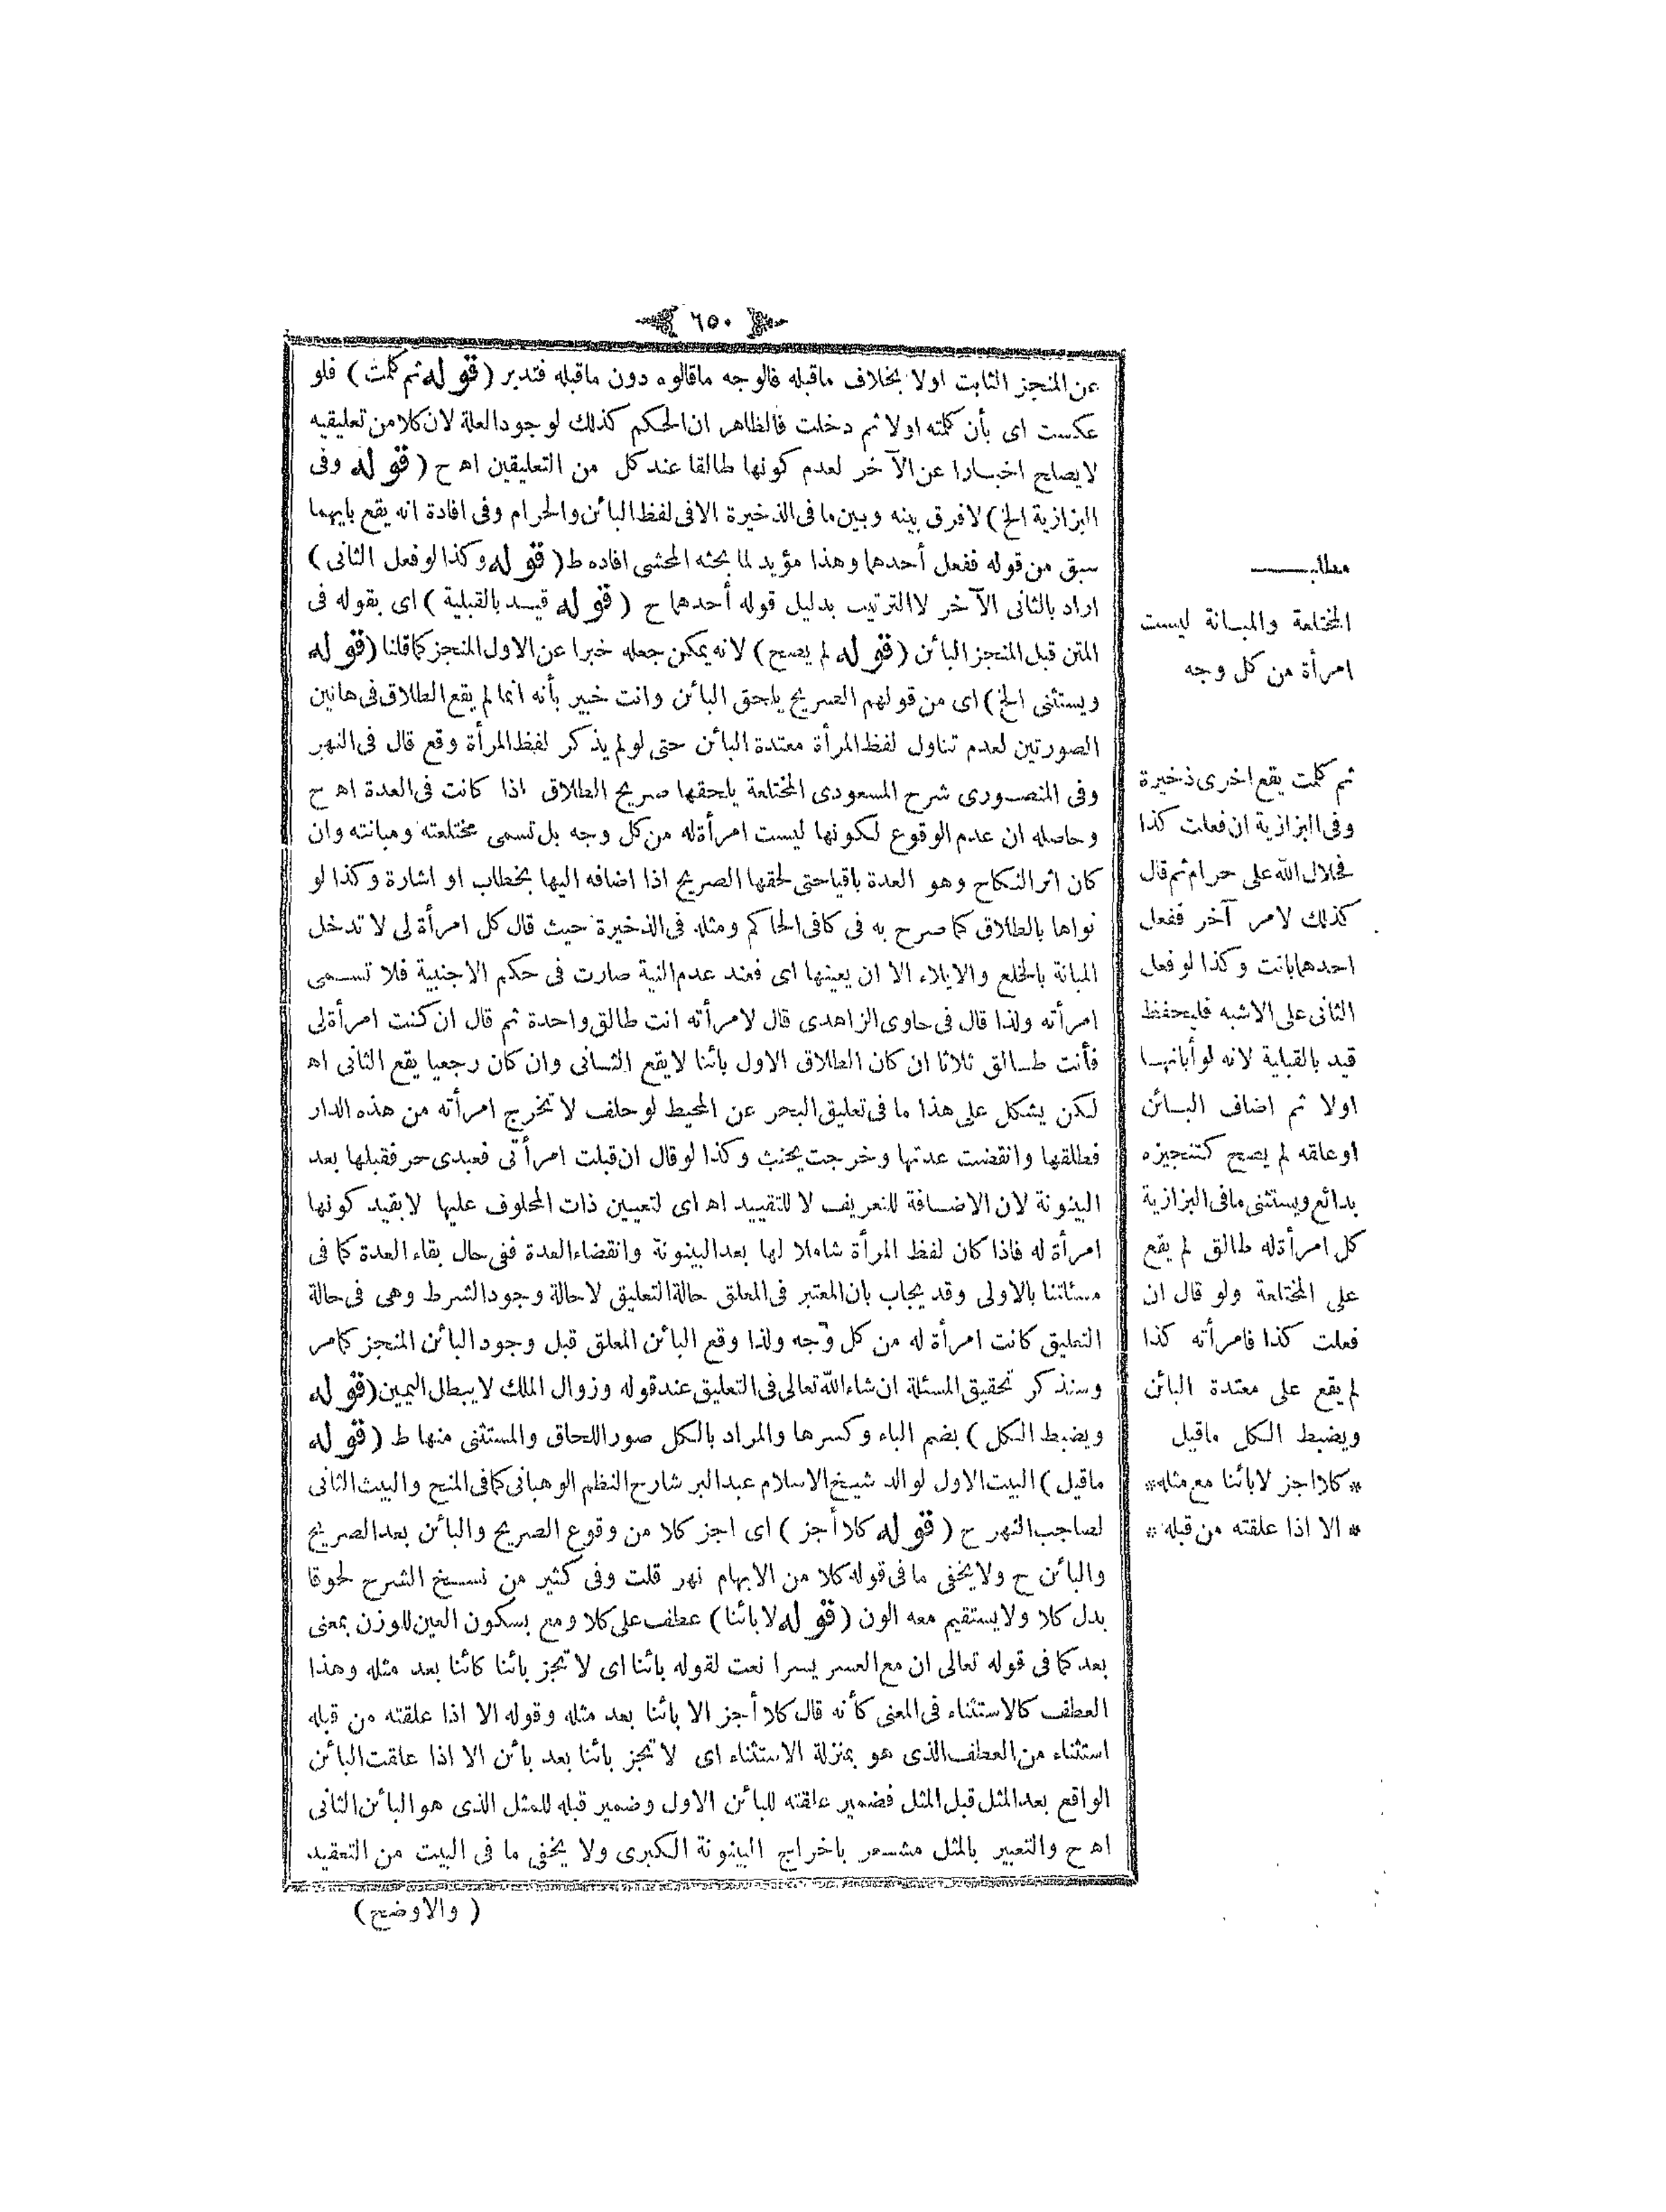 ٦٥٠
عن المنجز الثابت اولا بخلاف ماقبله فالوجه ماقالوه دون ماقبله فتدبر (قوله ثم كلمت) فلو
عكست اى بأن كلمته اولا ثم دخلت فالظاهر ان الحكم كذلك لوجود العلة لان كلا من تعليقيه
لايصلح اخبارا عن الآخر لعدم كونها طالقا عند كل من التعليقين اه ح (قوله وفى
البزازية الخ) لافرق بينه وبين ما فى الذخيرة الا فى لفظ البائن والحرام وفى افادة انه يقع بايهما
سبق من قوله ففعل أحدهما وهذا مؤيد لما بحثه المحشى افاده ط (قوله وكذا لو فعل الثانى)
اراد بالثانى الآخر لا الترتيب بدليل قوله أحدهما ح (قوله قيد بالقبلية) اى بقوله فى
المتن قبل المنجز البائن (قوله لم يصح) لانه يمكن جعله خبرا عن الاول المنجز كما قلنا (قوله
ويستثنى الخ) اى من قولهم الصريح يلحق البائن وانت خبير بأنه انما لم يقع الطلاق فى هاتين
الصورتين لعدم تناول لفظ المرأة معتدة البائن حتى لو لم يذكر لفظ المرأة وقع قال فى النهر
وفى المنصورى شرح المسعودى المختلعة يلحقها صريح الطلاق اذا كانت فى العدة اه ح
وحاصله ان عدم الوقوع لكونها ليست امرأة له من كل وجه بل تسمى مختلعته ومبانته وان
كان اثر النكاح وهو العدة باقيا حتى لحقها الصريح اذا اضافه اليها بخطاب او اشارة وكذا لو
نواها بالطلاق كما صرح به فى كافى الحاكم ومثله فى الذخيرة حيث قال كل امرأة لى لا تدخل
المبانة بالخلع والايلاء الا ان يعينها اى فعند عدم النية صارت فى حكم الاجنبية فلا تسمى
امرأته ولذا قال فى حاوى الزاهدى قال لامرأته انت طالق واحدة ثم قال ان كنت امرأة لى
فأنت طالق ثلاثا ان كان الطلاق الاول بائنا لايقع الثانى وان كان رجعيا يقع الثانى اه
لكن يشكل على هذا ما فى تعليق البحر عن المحيط لو حلف لا تخرج امرأته من هذه الدار
فطلقها وانقضت عدتها وخرجت يحنث وكذا لو قال ان قبلت امرأتى فعبدى حر فقبلها بعد
البينونة لان الاضافة للتعريف لا للتقييد اه اى لتعيين ذات المحلوف عليها لا بقيد كونها
امرأة له فاذا كان لفظ المرأة شاملا لها بعد البينونة وانقضاء العدة ففى حال بقاء العدة كما فى
مسئلتنا بالاولى وقد يجاب بان المعتبر فى المعلق حالة التعليق لا حالة وجود الشرط وهى فى حالة
التعليق كانت امرأة له من كل وجه ولذا وقع البائن المعلق قبل وجود البائن المنجز كمامر
وسنذكر تحقيق المسئلة ان شاء الله تعالى فى التعليق عند قوله وزوال الملك لا يبطل اليمين (قوله
ويضبط الكل) بضم الباء وكسرها والمراد بالكل صور اللحاق والمستثنى منها ط (قوله
ماقيل) البيت الاول لوالد شيخ الاسلام عبد البر شارح النظم الوهبانى كما فى المنح والبيت الثانى
لصاحب النهر ح (قوله كلا أجز) اى اجز كلا من وقوع الصريح والبائن بعد الصريح
والبائن ح ولا يخفى ما فى قوله كلا من الابهام نهر قلت وفى كثير من نسخ الشرح لحوقا
بدل كلا ولا يستقيم معه الوزن (قوله لا بائنا) عطف على كلا ومع بسكون العين للوزن بمعنى
بعد كما فى قوله تعالى ان مع العسر يسرا نعت لقوله بائنا اى لا تجز بائنا كائنا بعد مثله وهذا
العطف كالاستثناء فى المعنى كأنه قال كلا أجز الا بائنا بعد مثله وقوله الا اذا علقته من قبله
استثناء من العطف الذى هو بمنزلة الاستثناء اى لا تجز بائنا بعد بائن الا اذا علقت البائن
الواقع بعد المثل قبل المثل فضمير علقته للبائن الاول وضمير قبله للمثل الذى هو البائن الثانى
اه ح والتعبير بالمثل مشعر باخراج البينونة الكبرى ولا يخفى ما فى البيت من التعقيد
(والاوضح)
مطلب
المختلعة والمبانة ليست
امرأة من كل وجه
ثم كلمت يقع اخرى ذخيرة
وفى البزازية ان فعلت كذا
فحلال الله على حرام ثم قال
كذلك لامر آخر ففعل
احدهما بانت وكذا لو فعل
الثانى على الاشبه فليحفظ
قيد بالقبلية لانه لو أبانها
اولا ثم اضاف البائن
او علقه لم يصح كتنجيزه
بدائع ويستثنى مافى البزازية
كل امرأة له طالق لم يقع
على المختلعة ولو قال ان
فعلت كذا فامرأته كذا
لم يقع على معتدة البائن
ويضبط الكل ماقيل
* كلا اجز لا بائنا مع مثله *
* الا اذا علقته من قبله *